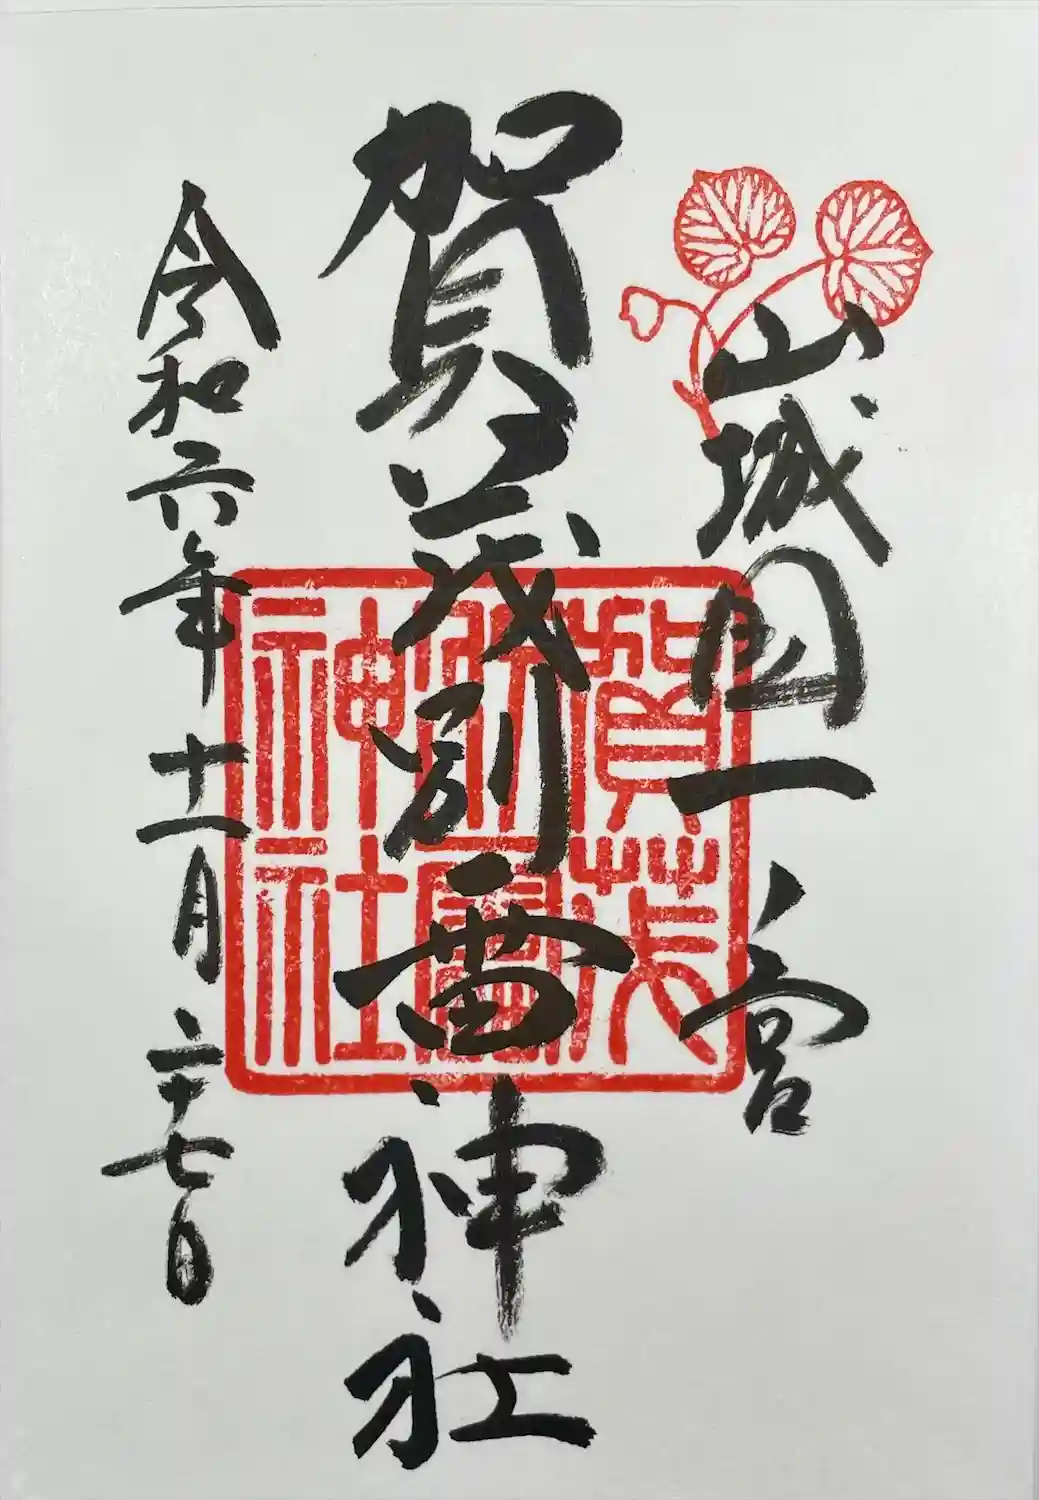 山城国一ノ宮
賀茂別雷神社
令和六年十一月二十七日
賀茂
別雷
神社